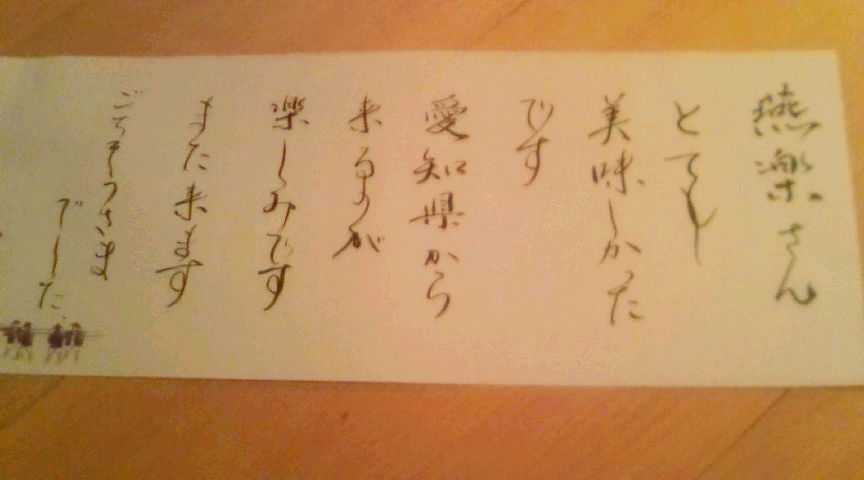 燕楽さん
とても
美味しかった
です
愛知県から
来るのが
楽しみです
また来ます
ごちそうさま
でした